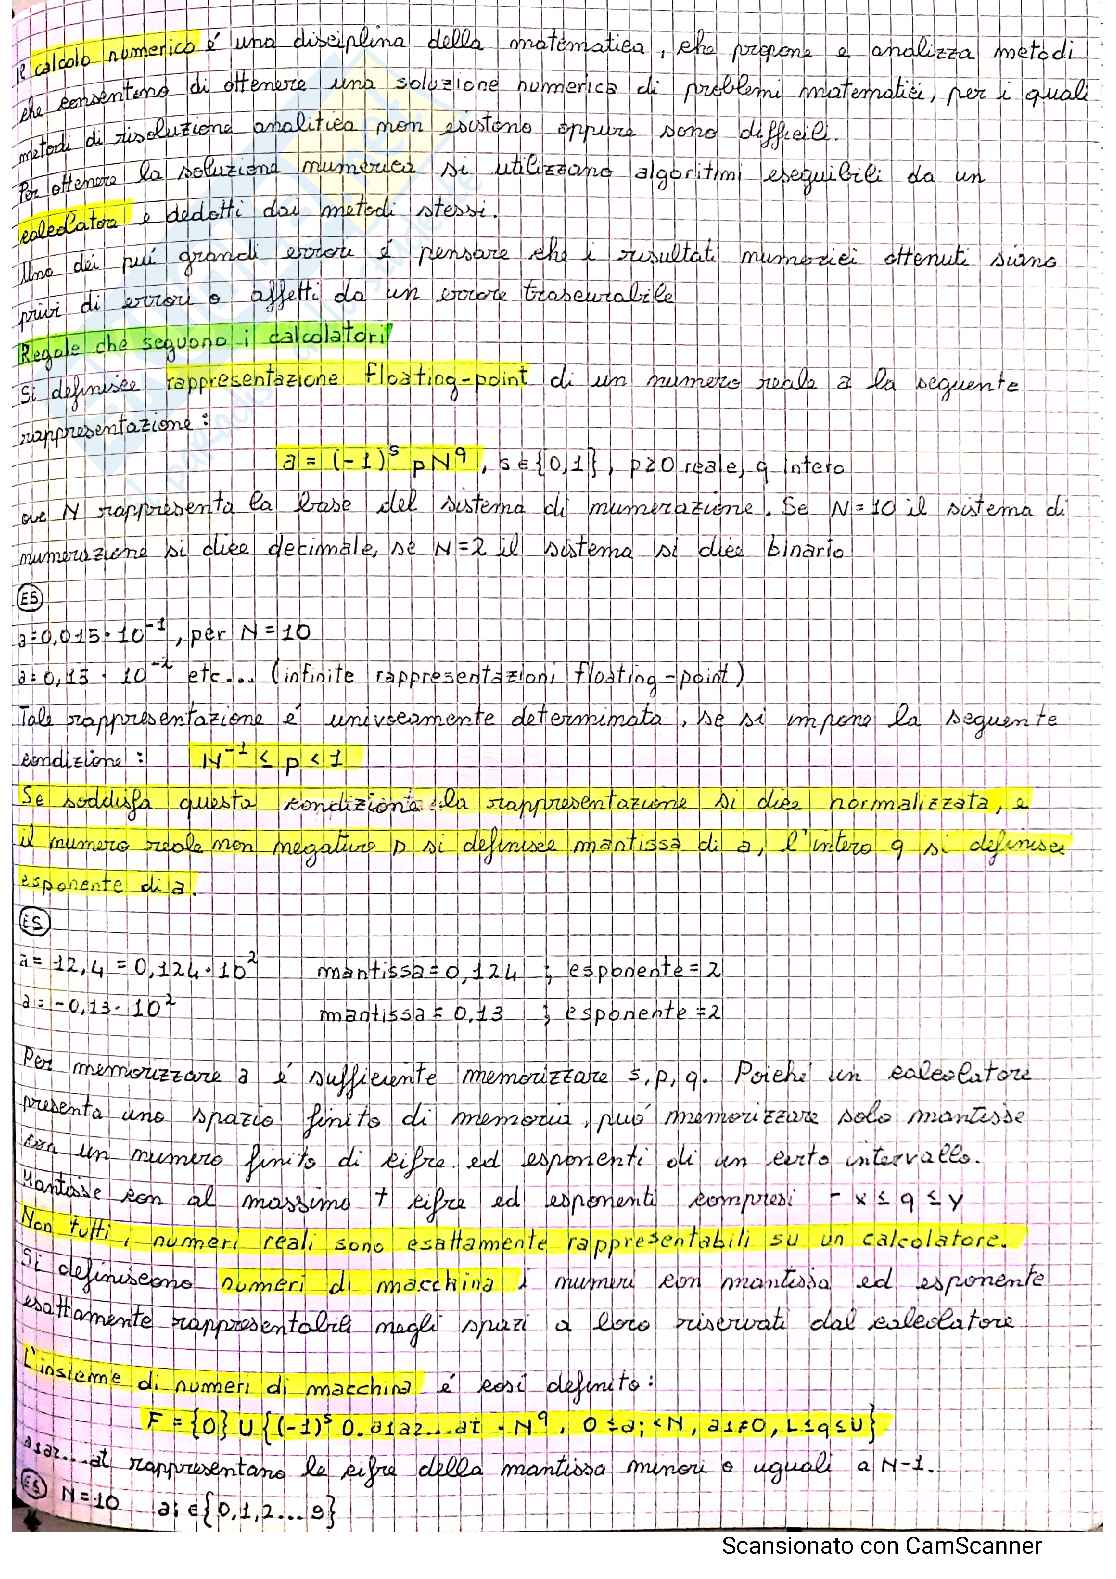 Il calcolo numerico é una disciplina della matematica, che propone e analizza metodi
che consentono di ottenere una soluzione numerica di problemi matematici, per i quali
metodi di risoluzione analitica non esistono oppure sono difficili.
Per ottenere la soluzione numerica si utilizzano algoritimi eseguibili da un
calcolatore e dedotti dai metodi stessi.
Uno dei piú grandi errori é pensare che i risultati numerici ottenuti siano
privi di errori o affetti da un errore trascurabile
Regole che seguono i calcolatori
Si definisce rappresentazione floating-point di un numero reale a la seguente
rappresentazione:
a = (-1)^s p N^q, s ∈ {0,1}, p≥0 reale, q intero
ove N rappresenta la base del sistema di numerazione. Se N=10 il sistema di
numerazione si dice decimale, se N=2 il sistema si dice binario
ES
a=0,015·10^-1, per N=10
a=0,15 · 10^-2 etc... (infinite rappresentazioni floating-point)
Tale rappresentazione é univocamente determinata, se si impone la seguente
condizione: N^-1 ≤ p < 1
Se soddisfa questa condizione la rappresentazione si dice normalizzata, e
il numero reale non negativo p si definisce mantissa di a, l'intero q si definisce
esponente di a.
ES
a= 12,4 = 0,124·10^2 mantissa=0,124 ; esponente=2
a=-0,13·10^2 mantissa=0,13 ; esponente=2
Per memorizzare a é sufficiente memorizzare s,p,q. Poiché un calcolatore
presenta uno spazio finito di memoria, puó memorizzare solo mantisse
con un numero finito di cifre ed esponenti di un certo intervallo.
Mantisse con al massimo t cifre ed esponenti compresi -x ≤ q ≤ y
Non tutti i numeri reali sono esattamente rappresentabili su un calcolatore.
Si definiscono numeri di macchina i numeri con mantissa ed esponente
esattamente rappresentabili negli spazi a loro riservati dal calcolatore
L'insieme di numeri di macchina é cosí definito:
F = {0} U {(-1)^s 0.a1a2...at · N^q, 0≤ai<N, a1≠0, L≤q≤U}
a1a2...at rappresentano le cifre della mantissa minori o uguali a N-1.
ES N=10 ai ∈ {0,1,2...9}
Scansionato con CamScanner